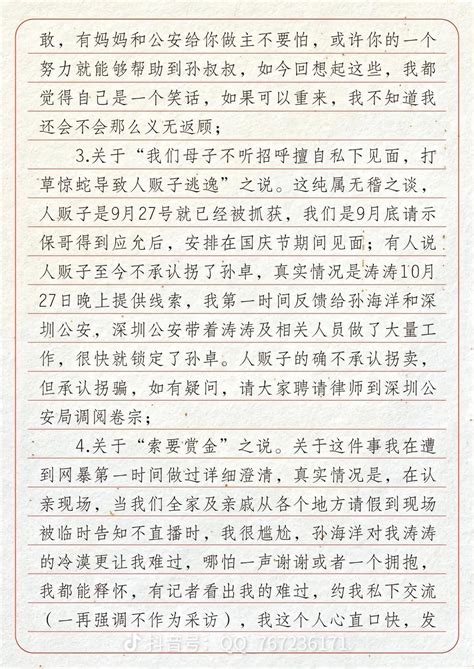 敢，有妈妈和公安给你做主不要怕，或许你的一个
努力就能够帮助到孙叔叔，如今回想起这些，我都
觉得自己是一个笑话，如果可以重来，我不知道我
还会不会那么义无返顾；
3.关于“我们母子不听招呼擅自私下见面，打
草惊蛇导致人贩子逃逸”之说。这纯属无稽之谈，
人贩子是9月27号就已经被抓获，我们是9月底请示
保哥得到应允后，安排在国庆节期间见面；有人说
人贩子至今不承认拐了孙卓，真实情况是涛涛10月
27日晚上提供线索，我第一时间反馈给孙海洋和深
圳公安，深圳公安带着涛涛及相关人员做了大量工
作，很快就锁定了孙卓。人贩子的确不承认拐卖，
但承认拐骗，如有疑问，请大家聘请律师到深圳公
安局调阅卷宗；
4.关于“索要赏金”之说。关于这件事我在遭
到网暴第一时间做过详细澄清，真实情况是，在认
亲现场，当我们全家及亲戚从各个地方请假到现场
被临时告知不直播时，我很尴尬，孙海洋对我涛涛
的冷漠更让我难过，哪怕一声谢谢或者一个拥抱，
我都能释怀，有记者看出我的难过，约我私下交流
（一再强调不作为采访），我这个人心直口快，发
抖音号：QQ_767236171